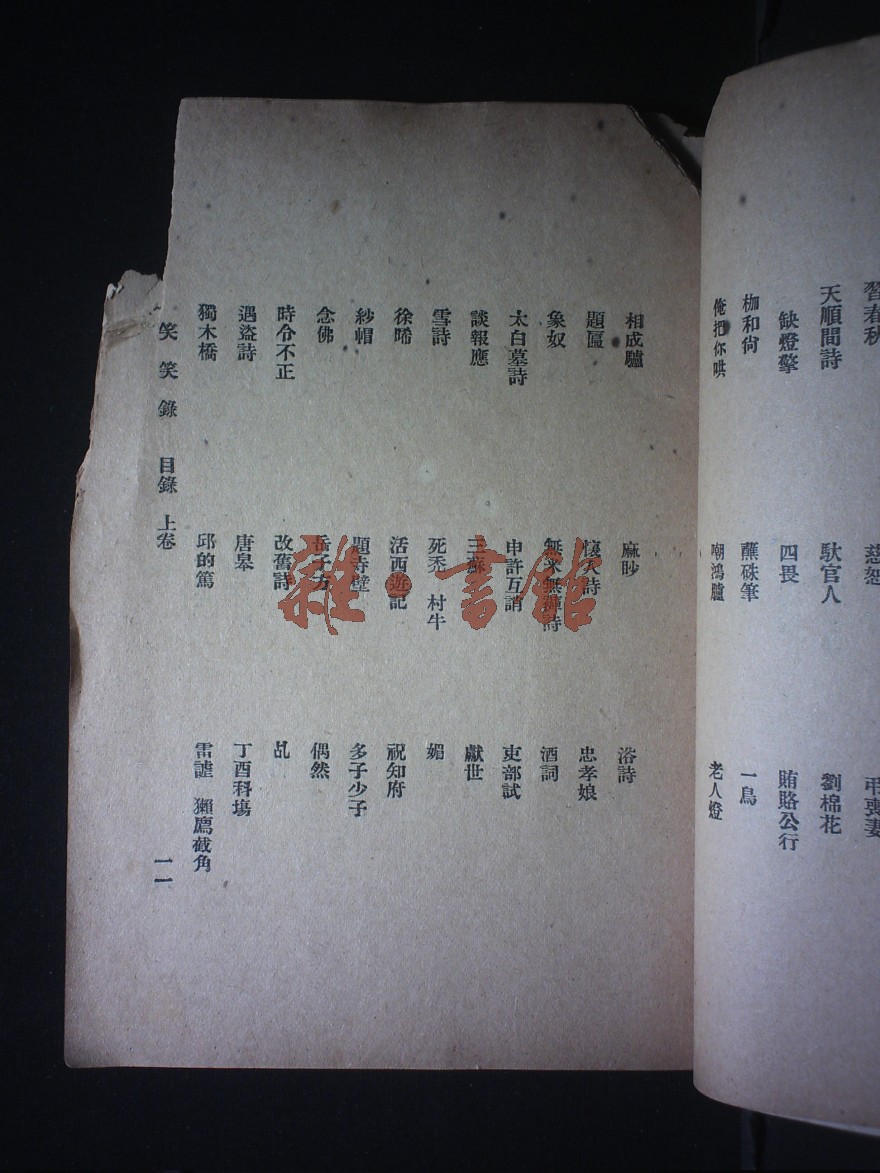 天順間詩 馱官人 劉棉花
缺燈擎 四畏 賄賂公行
枷和尙 蘸硃筆 一鳥
俺把你哄 嘲鴻臚 老人燈
相成驢 麻眇 浴詩
題匾 懷人詩 忠孝娘
象奴 酒詞
太白墓詩 申許互誚 吏部試
談報應 三蘇 獻世
雪詩 死禿 村牛 媚
徐晞 活西遊記 祝知府
紗帽 題寺壁 多子少子
念佛 岳子方 偶然
時令不正 改舊詩 乩
遇盜詩 唐皋 丁酉科場
獨木橋 邱的篤 雷謔 獺鷹截角
笑笑錄 目錄 上卷 一一
雜·書館